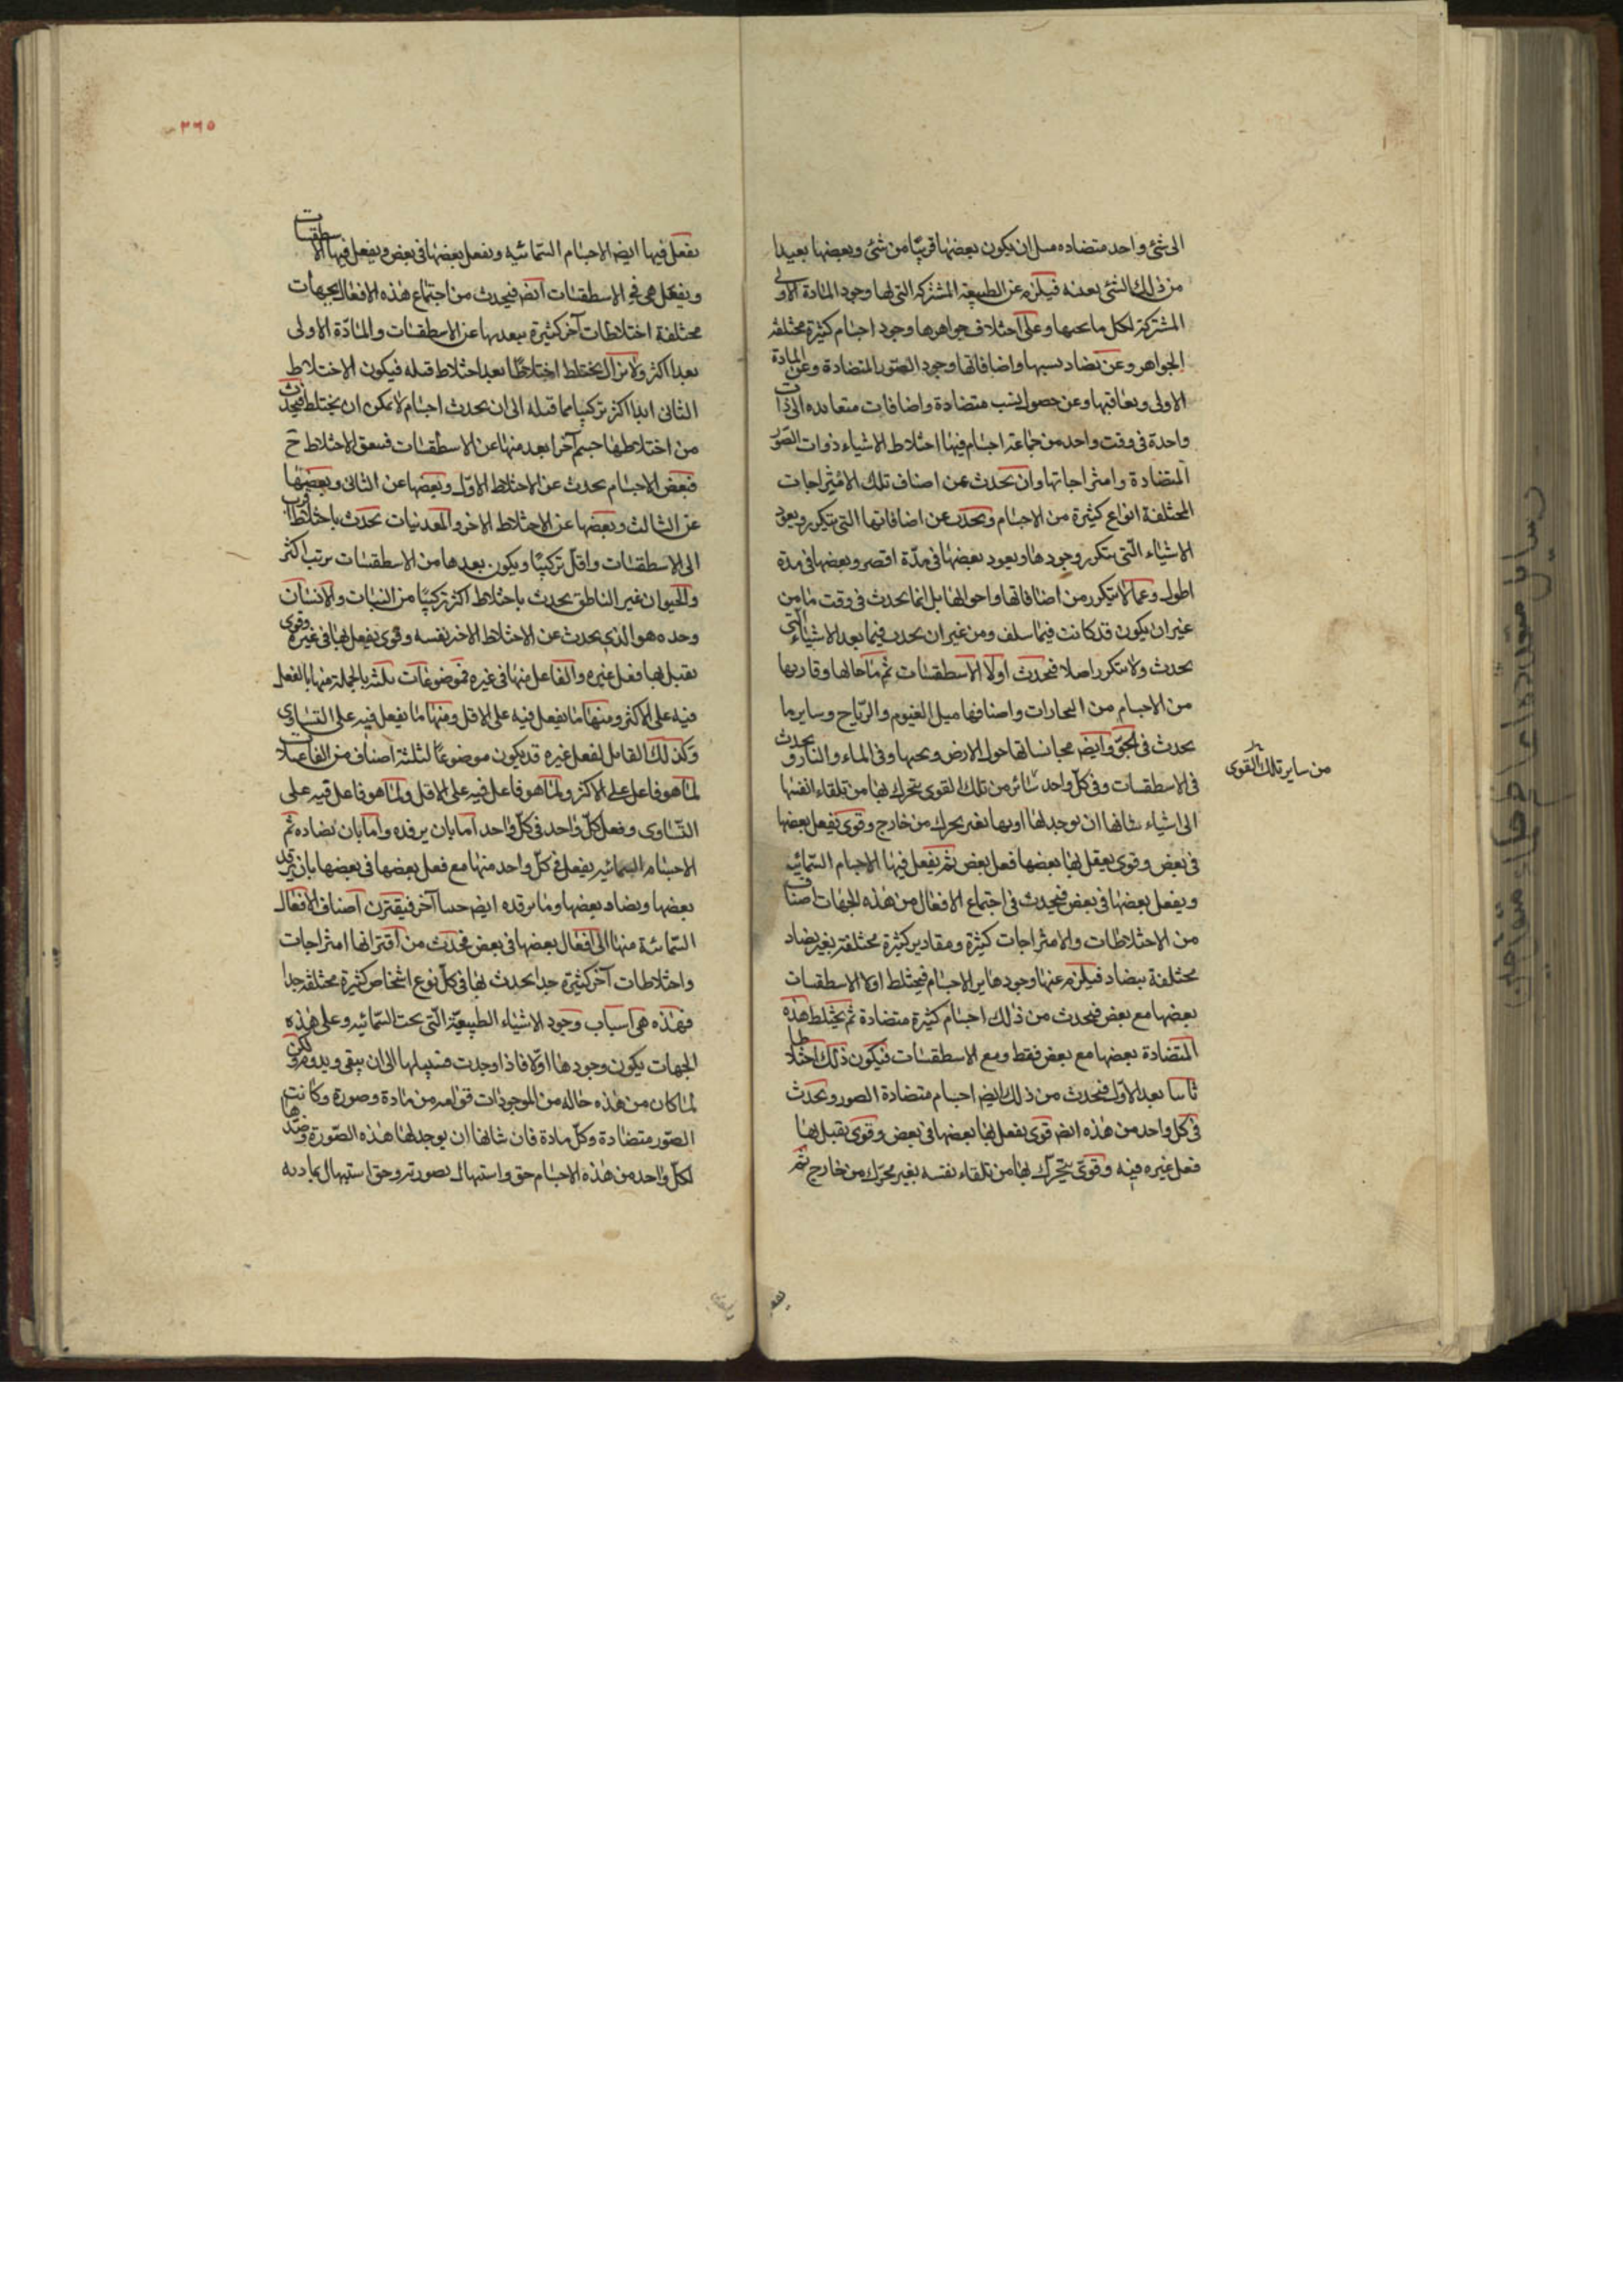 الى شئ واحد متضاده مثل ان يكون بعضها قريبا من شئ وبعضها بعيدا
من ذلك الشئ بعينه فيلزم عن الطبيعة المشتركة التي لها وجود المادة الاولى
المشتركة لكل ما تحتها وعلى اختلاف جواهرها وجود اجسام كثيرة مختلفة
الجواهر وعن تضاد نسبها واضافاتها وجود الصور المتضادة وعن المادة
الاولى وتعاقبها وعن حصول نسب متضادة واضافات متعانده الى ذات
واحدة فى وقت واحد من جماعة اجسام فيها اختلاط الاشياء ذوات الصور
المتضادة وامتزاجاتها وان يحدث عن اصناف تلك الامتزاجات
المختلفة انواع كثيرة من الاجسام ويحدث عن اضافاتها التى تتكرر وتعود
الاشياء التى يتكرر وجودها ويعود بعضها فى مدة اقصر وبعضها فى مدة
اطول وعما لا يتكرر من اضافاتها واحوالها بل انما يحدث فى وقت ما من
غير ان يكون قد كانت فيما سلف ومن غير ان يحدث فيما بعد الاشياء التى
يحدث ولا يتكرر اصلا فيحدث اولا الاسطقسات ثم ما جانسها وقاربها
من الاجسام من البخارات واصنافها مثل الغيوم والرياح وساير ما
يحدث فى الجو وايضه مجانساتها حول الارض وتحتها وفى الماء والنار ويحدث
فى الاسطقسات وفى كل واحد من ساير تلك القوى يتحرك بها من تلقاء انفسها
الى اشياء شانها ان يوجد لها او بها بغير محرك من خارج وقوى يفعل بعضها
فى بعض وقوى يقبل بها بعضها فعل بعض ثم يفعل فيها الاجسام السمائيه
ويفعل بعضها فى بعض فيحدث فى اجتماع الافعال من هذه الجهات اصناف
من الاختلاطات والامتزاجات كثيرة ومقادير كثيرة مختلفة بغير تضاد
مختلفة بتضاد فيلزم عنها وجود ساير الاجسام فيختلط اولا الاسطقسات
بعضها مع بعض فيحدث من ذلك اجسام كثيرة متضادة ثم يختلط هذه
المتضادة بعضها مع بعض فقط ومع الاسطقسات فيكون ذلك اختلاطا
ثانيا بعد الاول فيحدث من ذلك ايضه اجسام متضادة الصور ويحدث
فى كل واحد من هذه ايضه قوى يفعل بها بعضها فى بعض وقوى يقبل بها
فعل غيره فيه وقوى يتحرك بها من تلقاء نفسه بغير محرك من خارج ثم
من ساير تلك القوى
٣٦٥
يفعل فيها ايضه الاجسام السمائيه ويفعل بعضها فى بعض ويفعل فيها الاسطقسات
ويفعل هى فى الاسطقسات ايضه فيحدث من اجتماع هذه الافعال بجهات
مختلفة اختلاطات آخر كثيرة يبعد بها عن الاسطقسات والمادة الاولى
بعدا اكثر ولا يزال يختلط اختلاطا بعد اختلاط قبله فيكون الاختلاط
الثانى ابدا اكثر تركيبا مما قبله الى ان يحدث اجسام لا يمكن ان يختلط فيحدث
من اختلاطها جسم آخر ابعد منها عن الاسطقسات فيقف الاختلاط ح
فبعض الاجسام يحدث عن الاختلاط الاول وبعضها عن الثانى وبعضها
عن الثالث وبعضها عن الاختلاط الاخر والمعدنيات يحدث باختلاط اقرب
الى الاسطقسات واقل تركيبا ويكون بعدها من الاسطقسات برتب اكثر
والحيوان غير الناطق يحدث باختلاط اكثر تركيبا من النبات والانسان
وحده هو الذى يحدث عن الاختلاط الاخر نفسه وقوى يفعل بها فى غيره وقوى
يقبل بها فعل غيره والفاعل منها فى غيره فموضوعات ثلثه بالجملة منها ما يفعل
فيه على الاكثر ومنها ما يفعل فيه على الاقل ومنها ما يفعل فيه على التساوى
وكذلك القابل لفعل غيره قد يكون موضوعا لثلثة اصناف من الفاعلات
لما هو فاعل على الاكثر ولما هو فاعل فيه على الاقل ولما هو فاعل فيه على
التساوى وفعل كل واحد فى كل واحد اما بان يرفده واما بان يضاده ثم
الاجسام السمائيه يفعل فى كل واحد منها مع فعل بعضها فى بعضها بان يرفد
بعضها ويضاد بعضها وما يرفده ايضه حينا آخر فيقترن اصناف الافعال
السمائية منها الى افعال بعضها فى بعض فيحدث من اقترانها امتزاجات
واختلاطات آخر كثيرة جدا يحدث بها فى كل نوع اشخاص كثيرة مختلفة جدا
فهذه هى اسباب وجود الاشياء الطبيعية التى تحت السمائيه وعلى هذه
الجهات يكون وجودها اولا فاذا وجدت فسبيلها الى ان يبقى ويدوم ولكن
لما كان من هذه حاله من الموجودات قوامه من مادة وصورة وكانت
الصور متضادة وكل مادة فان شانها ان يوجد لها هذه الصورة وضدها
لكل واحد من هذه الاجسام حق واستيهال بصورته وحق استيهال بمادته